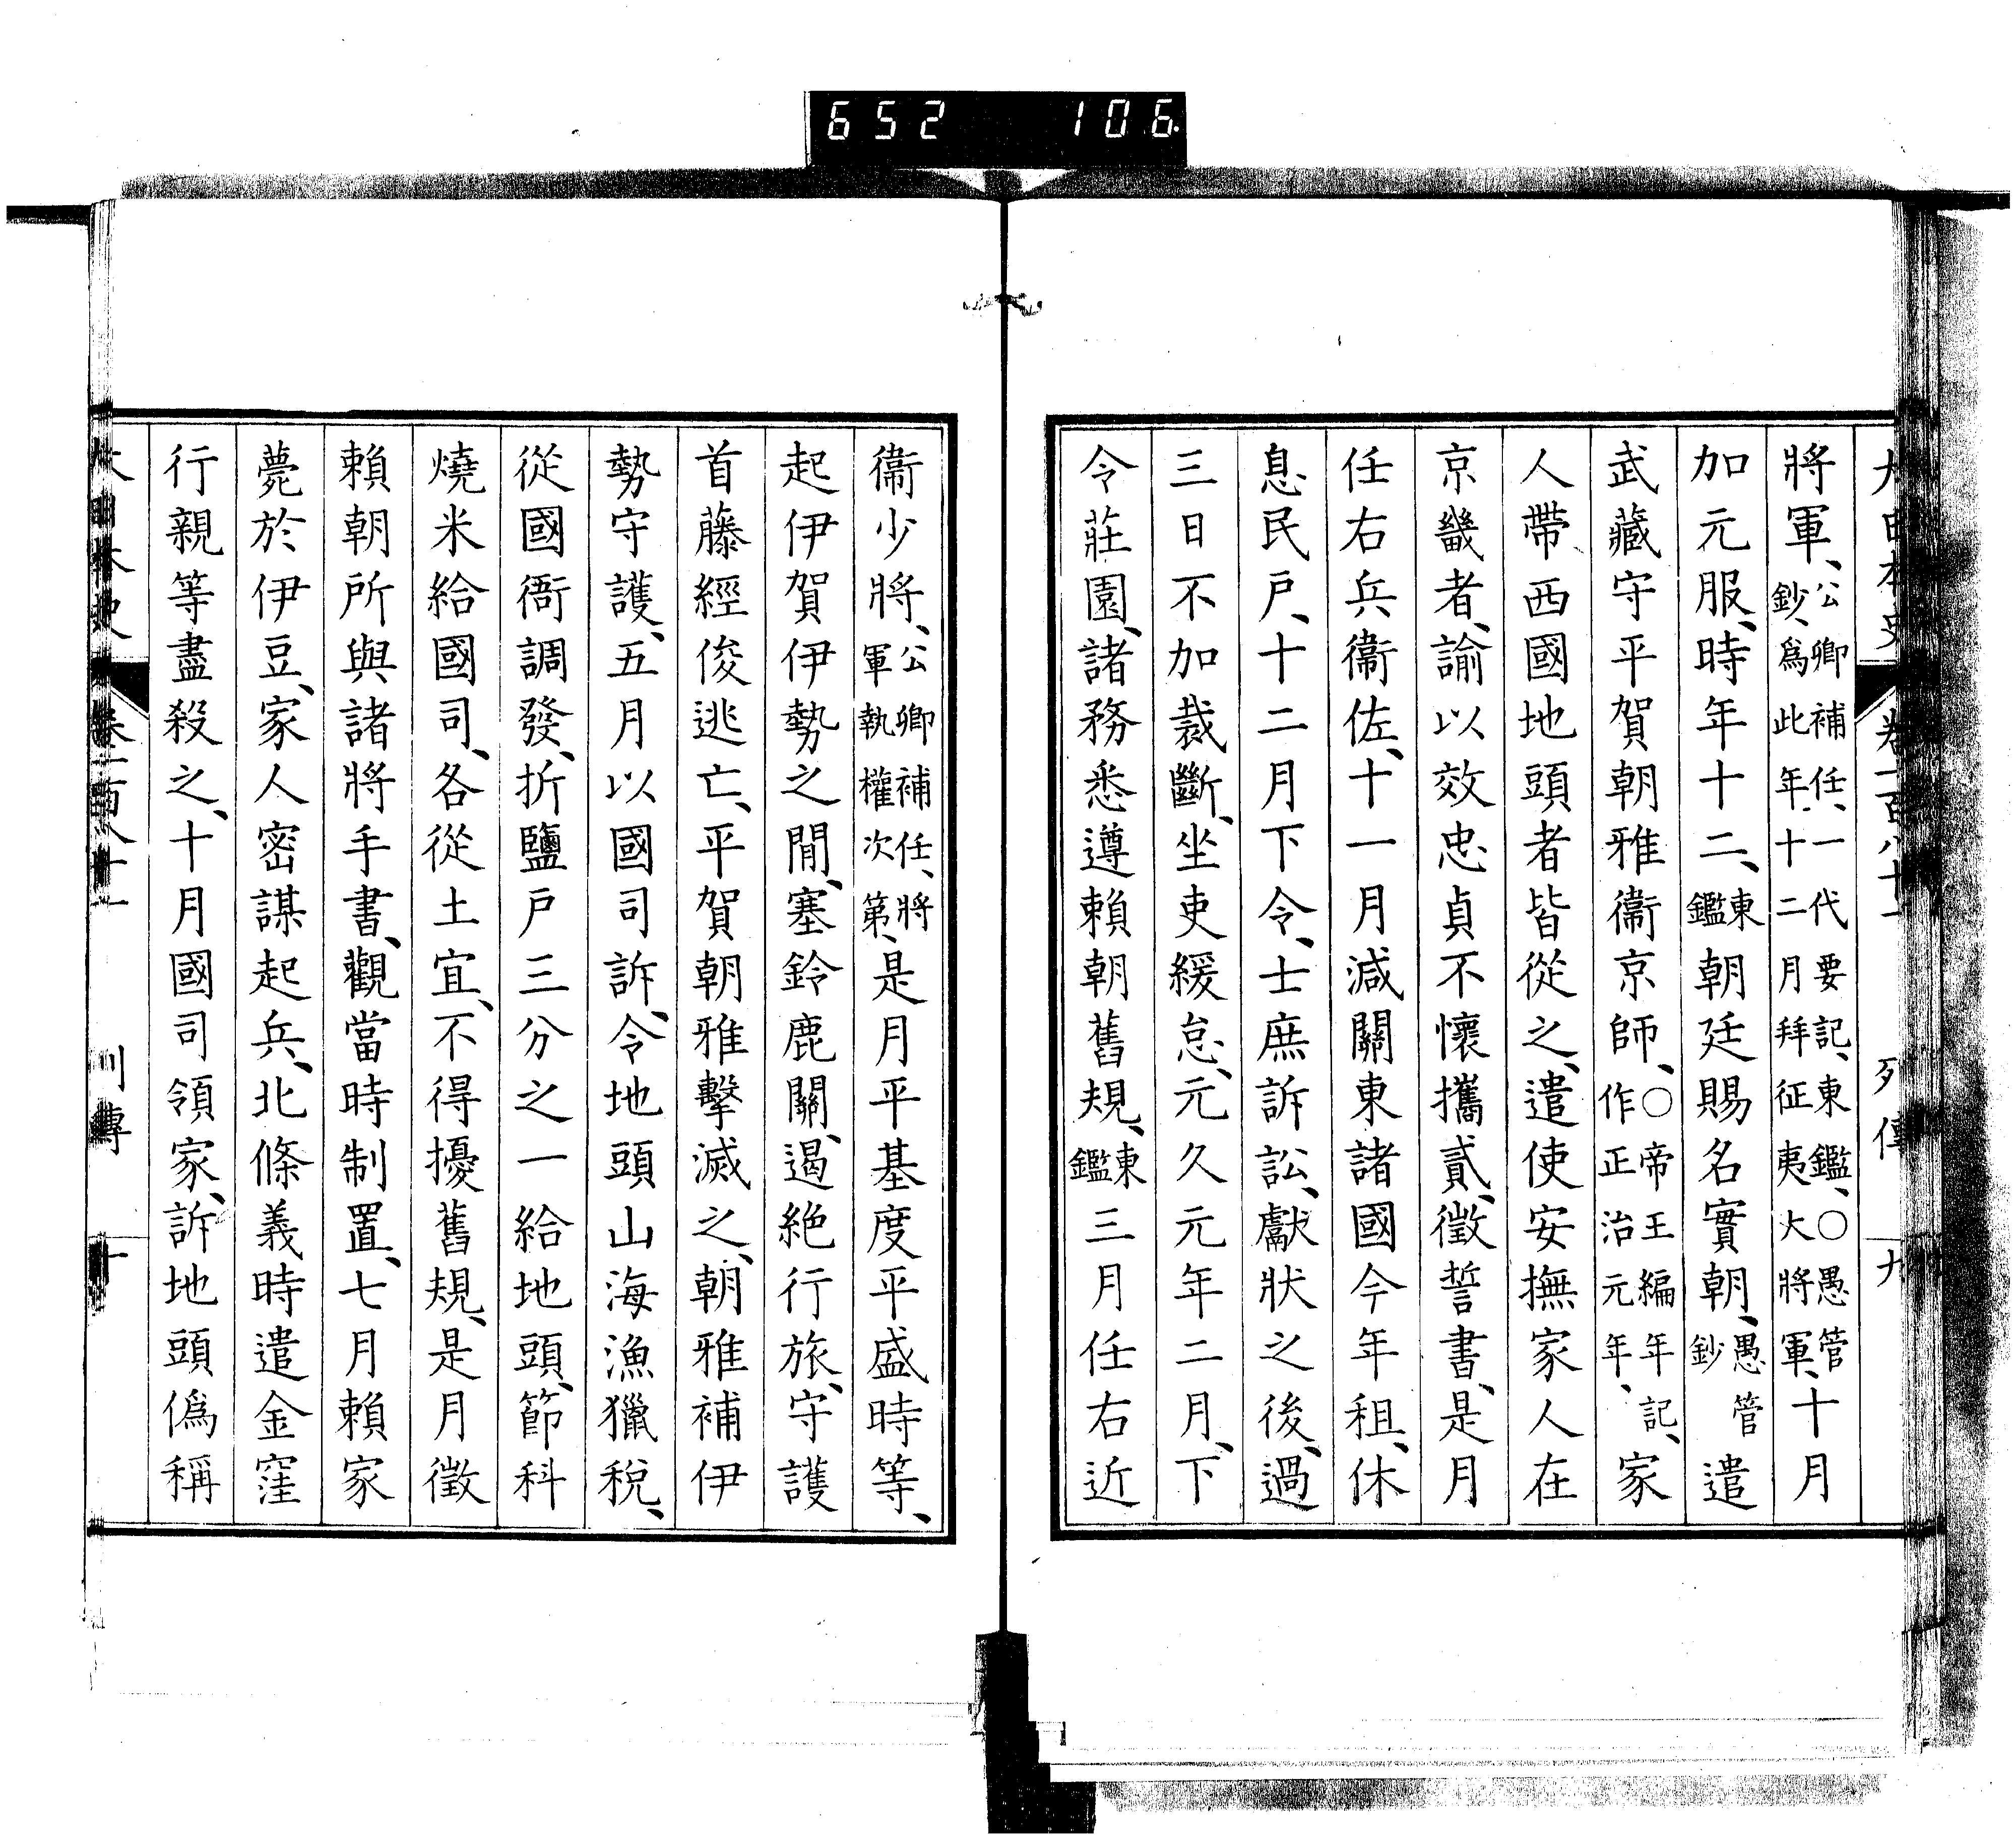 652 106.
大日本史 卷一百八十一 列傳 九
將軍、公卿補任、一代要記、東鑑、〇愚管鈔、爲此年十二月拜征夷大將軍、十月
加元服、時年十二、東鑑朝廷賜名實朝、愚管鈔遣
武藏守平賀朝雅衞京師、〇帝王編年記、作正治元年、家
人帶西國地頭者皆從之、遣使安撫家人在
京畿者、諭以效忠貞不懷攜貳、徵誓書、是月
任右兵衞佐、十一月減關東諸國今年租、休
息民戶、十二月下令、士庶訴訟、獻狀之後、過
三日不加裁斷、坐吏緩怠、元久元年二月、下
令莊園、諸務悉遵賴朝舊規、東鑑三月任右近
衞少將、公卿補任、將軍執權次第、是月平基度平盛時等、
起伊賀伊勢之閒、塞鈴鹿關、遏絕行旅、守護
首藤經俊逃亡、平賀朝雅擊滅之、朝雅補伊
勢守護、五月以國司訴、令地頭山海漁獵稅、
從國衙調發、折鹽戶三分之一給地頭、節科
燒米給國司、各從土宜、不得擾舊規、是月徵
賴朝所與諸將手書、觀當時制置、七月賴家
薨於伊豆、家人密謀起兵、北條義時遣金窪
行親等盡殺之、十月國司領家、訴地頭僞稱
大日本史 卷一百八十一 列傳 十